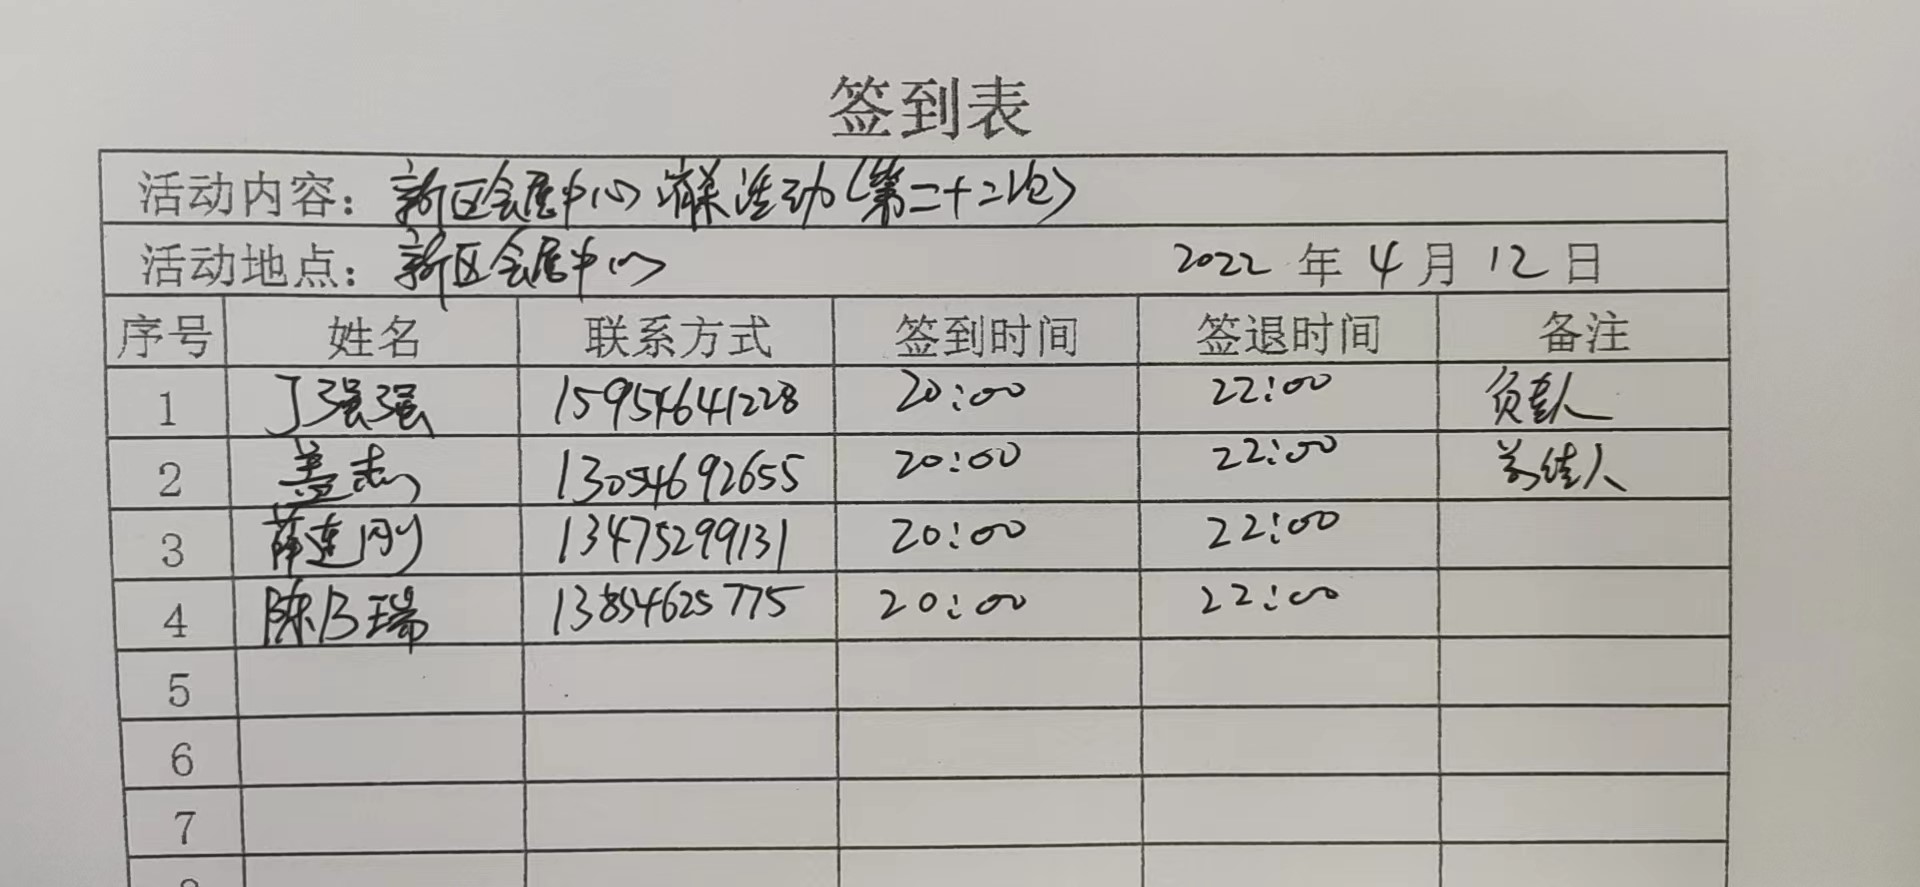 签到表
活动内容：新区会展中心消杀活动（第二十二次）
活动地点：新区会展中心 2022 年 4 月 12 日
序号 姓名 联系方式 签到时间 签退时间 备注
1 丁强强 15954641228 20:00 22:00 负责人
2 盖志 13054692655 20:00 22:00 人
3 薛连刚 13475299131 20:00 22:00
4 陈乃瑞 13854625775 20:00 22:00
5
6
7